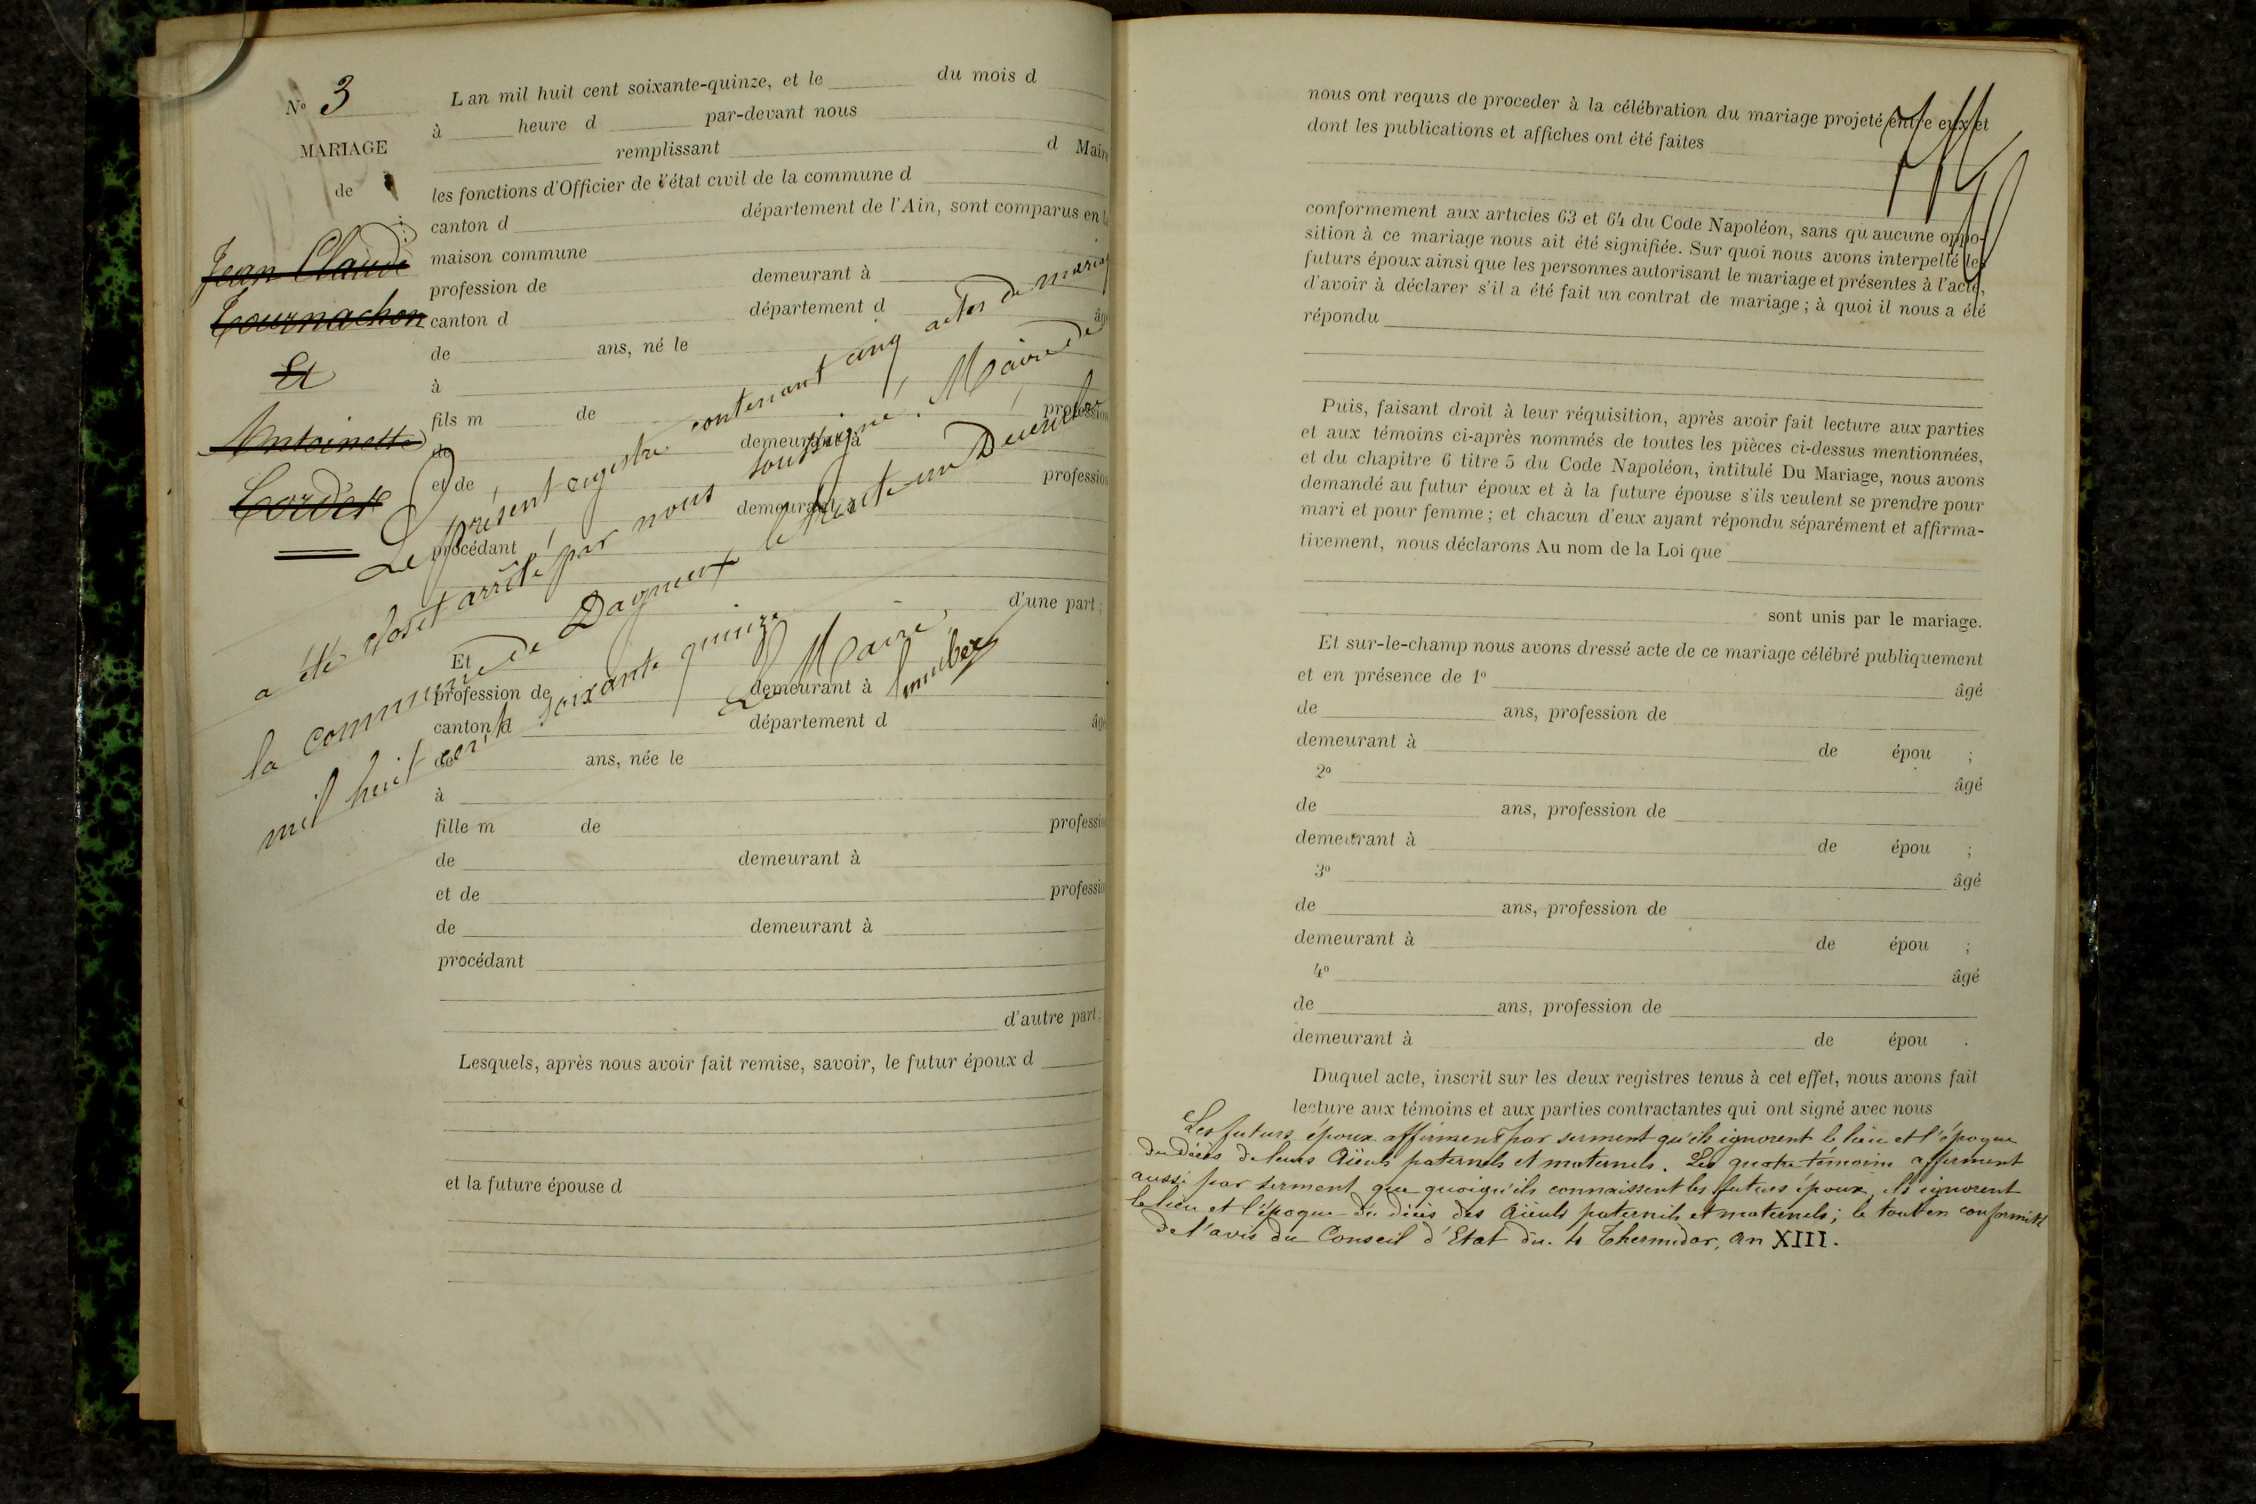 No 3
MARIAGE
de
Jean Claude
Tournachon
Et
Antoinette
Cordier
L'an mil huit cent soixante-quinze, et le du mois d
à heure d par-devant nous
remplissant d Maire
les fonctions d'Officier de l'état civil de la commune d
canton d département de l'Ain, sont comparus en la
maison commune
profession de demeurant à
canton d département d âgé
de ans, né le
à
fils m de profession
de demeurant à
et de profession
demeurant à
procédant
d'une part;
Et
profession de demeurant à
canton d département d âgé
de ans, née le
à
fille m de profession
de demeurant à
et de profession
de demeurant à
procédant
d'autre part:
Lesquels, après nous avoir fait remise, savoir, le futur époux d
et la future épouse d
Le présent registre contenant cinq actes de mariage
a été clos et arrêté par nous soussigné, Maire de
la commune de Dagneux le trente un Décembre
mil huit cent soixante quinze
Le Maire,
nous ont requis de proceder à la célébration du mariage projeté entre eux et
dont les publications et affiches ont été faites
conformement aux articles 63 et 64 du Code Napoléon, sans qu'aucune oppo-
sition à ce mariage nous ait été signifiée. Sur quoi nous avons interpellé les
futurs époux ainsi que les personnes autorisant le mariage et présentes à l'acte,
d'avoir à déclarer s'il a été fait un contrat de mariage; à quoi il nous a été
répondu
Puis, faisant droit à leur réquisition, après avoir fait lecture aux parties
et aux témoins ci-après nommés de toutes les pièces ci-dessus mentionnées,
et du chapitre 6 titre 5 du Code Napoléon, intitulé Du Mariage, nous avons
demandé au futur époux et à la future épouse s'ils veulent se prendre pour
mari et pour femme; et chacun d'eux ayant répondu séparément et affirma-
tivement, nous déclarons Au nom de la Loi que
sont unis par le mariage.
Et sur-le-champ nous avons dressé acte de ce mariage célébré publiquement
et en présence de 1o âgé
de ans, profession de
demeurant à de épou ;
2o âgé
de ans, profession de
demeurant à de épou ;
3o âgé
de ans, profession de
demeurant à de épou ;
4o âgé
de ans, profession de
demeurant à de épou .
Duquel acte, inscrit sur les deux registres tenus à cet effet, nous avons fait
lecture aux témoins et aux parties contractantes qui ont signé avec nous
Les futurs époux affirment par serment qu'ils ignorent le lieu et l'époque
du décès de leurs Aïeuls paternels et maternels. Les quatre témoins afferment
aussi par serment que quoiqu'ils connaissent les futurs époux, ils ignorent
le lieu et l'époque du décès des Aïeuls paternels et maternels; le tout en conformité
de l'avis du Conseil d'Etat du 4 Thermidor, an XIII.